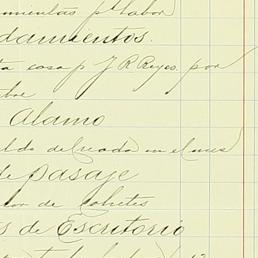 mientas pa labor
damientos.
ta casa p J R Reyes. por
bre
Alamo
ldo del criado en el mes
de pasaje
lor de cohetes
s de Escritorio